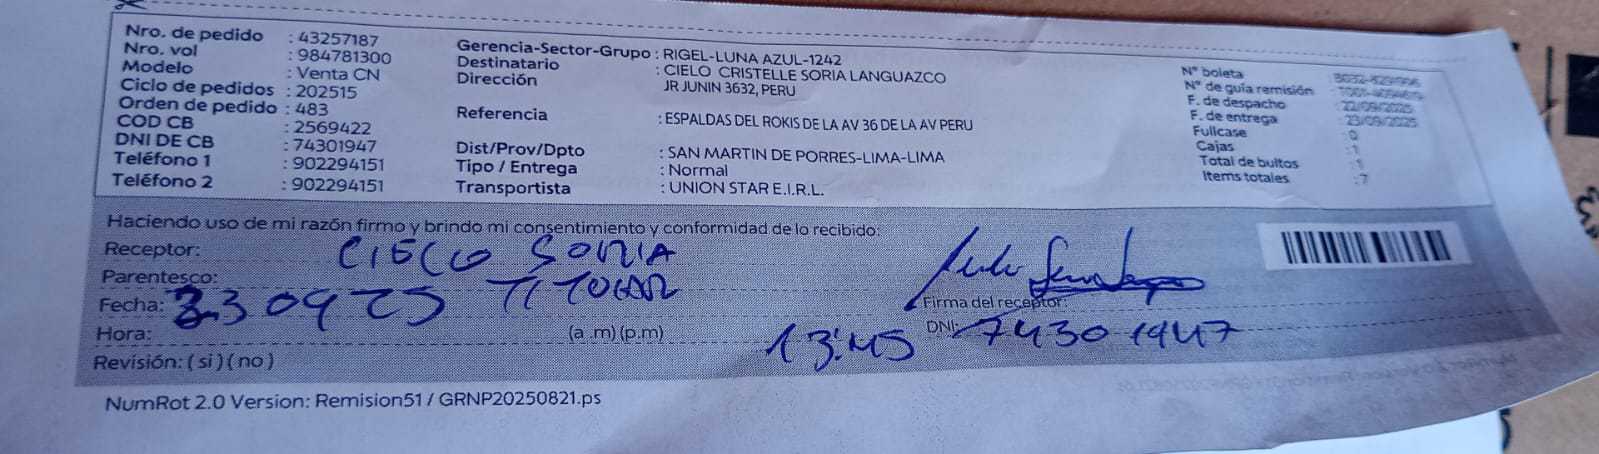 Nro. de pedido : 43257187
Nro. vol : 984781300
Modelo : Venta CN
Ciclo de pedidos : 202515
Orden de pedido : 483
COD CB : 2569422
DNI DE CB : 74301947
Teléfono 1 : 902294151
Teléfono 2 : 902294151
Gerencia-Sector-Grupo : RIGEL-LUNA AZUL-1242
Destinatario : CIELO CRISTELLE SORIA LANGUAZCO
Dirección JR JUNIN 3632, PERU
Referencia : ESPALDAS DEL ROKIS DE LA AV 36 DE LA AV PERU
Dist/Prov/Dpto : SAN MARTIN DE PORRES-LIMA-LIMA
Tipo / Entrega : Normal
Transportista : UNION STAR E.I.R.L.
N° boleta
N° de guía remisión
F. de despacho : 22/09/2025
F. de entrega : 23/09/2025
Fullcase : 0
Cajas : 1
Total de bultos : 1
Items totales : 7
Haciendo uso de mi razón firmo y brindo mi consentimiento y conformidad de lo recibido:
Receptor: CIELO SORIA
Parentesco: TITULAR
Fecha: 230925
Hora: (a .m) (p.m) 13:45
Revisión: ( si ) ( no )
Firma del receptor:
DNI: 74301947
NumRot 2.0 Version: Remision51 / GRNP20250821.ps